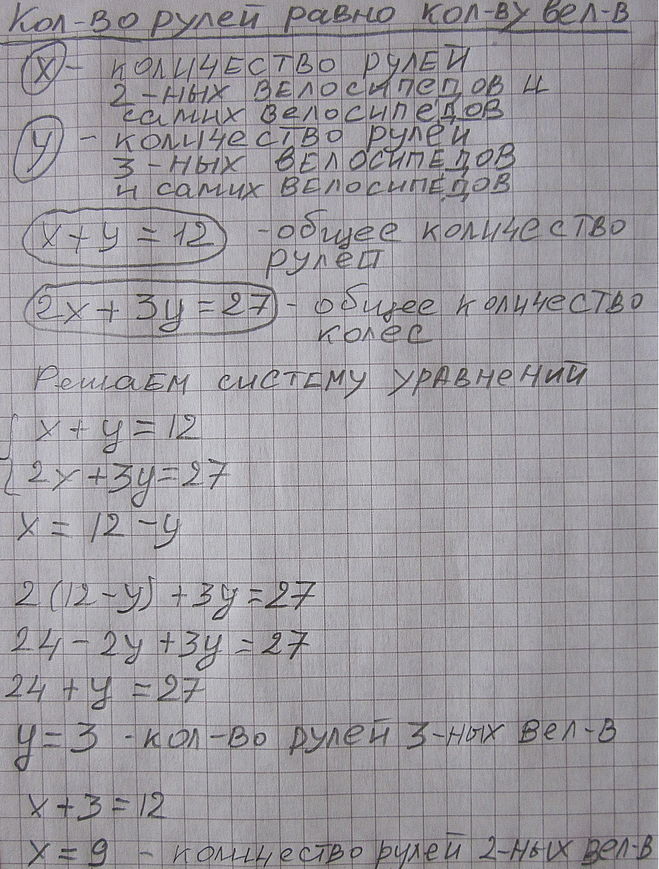 Кол-во рулей равно кол-ву вел-в
x - количество рулей
2-ных велосипедов и
самих велосипедов
y - количество рулей
3-ных велосипедов
и самих велосипедов
x + y = 12 - общее количество
рулей
2x + 3y = 27 - общее количество
колес
Решаем систему уравнений
{ x + y = 12
2x + 3y = 27
x = 12 - y
2(12 - y) + 3y = 27
24 - 2y + 3y = 27
24 + y = 27
y = 3 - кол-во рулей 3-ных вел-в
x + 3 = 12
x = 9 - количество рулей 2-ных вел-в